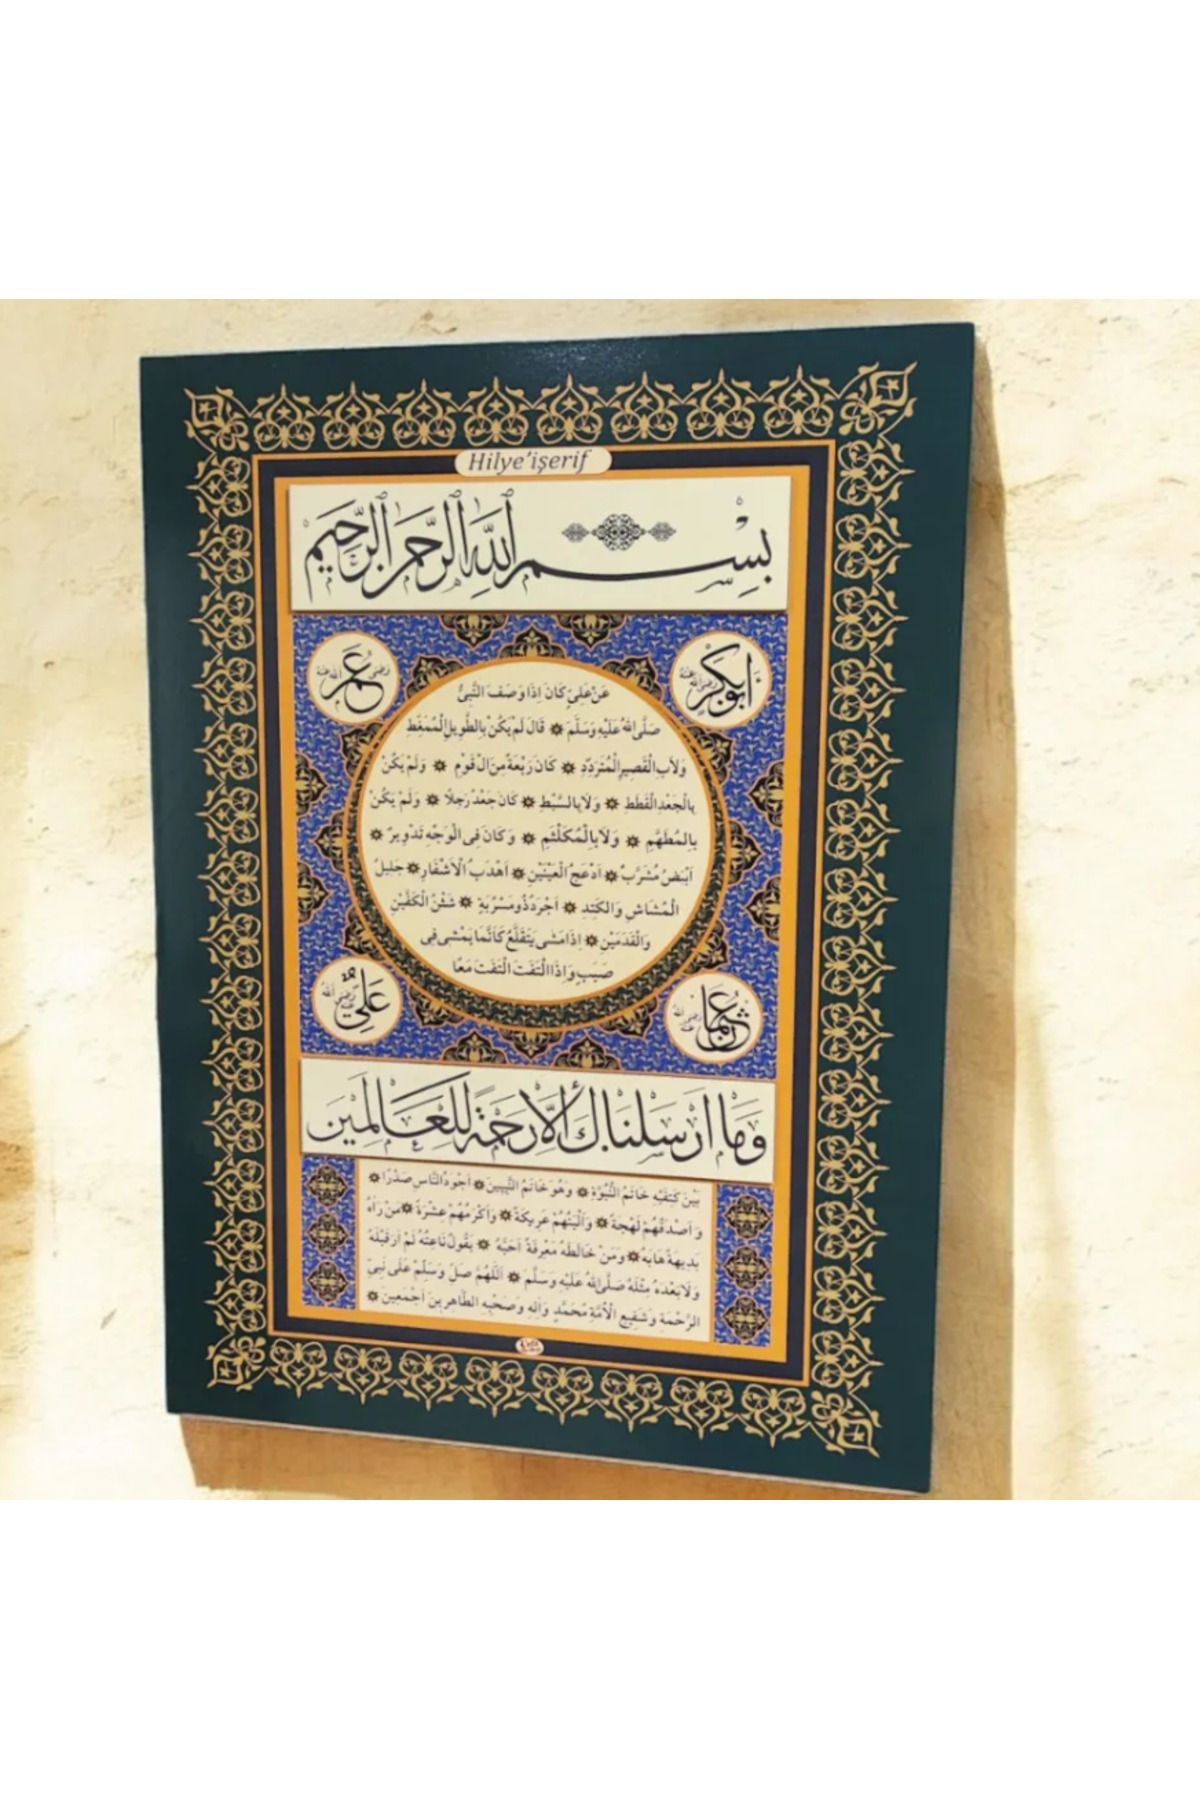 Hilye'işerif
بِسْمِ اللهِ الرَّحْمٰنِ الرَّحِيمِ
عُمَرْ رضى الله عنه
اَبُوبَكْرْ رضى الله عنه
عَنْ عَلِىٍّ كَانَ اِذَا وَصَفَ النَّبِىَّ
صَلَّى اللهُ عَلَيْهِ وَسَلَّمَ ۞ قَالَ لَمْ يَكُنْ بِالطَّوِيلِ الْمُمَغَّطِ
وَلَابِ الْقَصِيرِ الْمُتَرَدِّدِ ۞ كَانَ رَبْعَةً مِنَ الْقَوْمِ ۞ وَلَمْ يَكُنْ
بِالْجَعْدِ الْقَطَطِ ۞ وَلَا بِالسَّبْطِ ۞ كَانَ جَعْدًا رَجِلًا ۞ وَلَمْ يَكُنْ
بِالْمُطَهَّمِ ۞ وَلَا بِالْمُكَلْثَمِ ۞ وَكَانَ فِى الْوَجْهِ تَدْوِيرٌ ۞
اَبْيَضُ مُشْرَبٌ ۞ اَدْعَجُ الْعَيْنَيْنِ ۞ اَهْدَبُ الْاَشْفَارِ ۞ جَلِيلُ
الْمُشَاشِ وَالْكَتَدِ ۞ اَجْرَدُ ذُو مَسْرُبَةٍ ۞ شَثْنُ الْكَفَّيْنِ
وَالْقَدَمَيْنِ ۞ اِذَا مَشٰى يَتَقَلَّعُ كَاَنَّمَا يَمْشِى فِى
صَبَبٍ وَاِذَا الْتَفَتَ الْتَفَتَ مَعًا
عَلِىٌّ رضى الله عنه
عُثْمَانْ رضى الله عنه
وَمَا اَرْسَلْنَاكَ اِلَّا رَحْمَةً لِلْعَالَمِينَ
بَيْنَ كَتِفَيْهِ خَاتَمُ النُّبُوَّةِ ۞ وَهُوَ خَاتَمُ النَّبِيِّينَ ۞ اَجْوَدُ النَّاسِ صَدْرًا ۞
وَاَصْدَقُهُمْ لَهْجَةً ۞ وَاَلْيَنُهُمْ عَرِيكَةً ۞ وَاَكْرَمُهُمْ عِشْرَةً ۞ مَنْ رَاٰهُ
بَدِيهَةً هَابَهُ ۞ وَمَنْ خَالَطَهُ مَعْرِفَةً اَحَبَّهُ ۞ يَقُولُ نَاعِتُهُ لَمْ اَرَ قَبْلَهُ
وَلَا بَعْدَهُ مِثْلَهُ صَلَّى اللهُ عَلَيْهِ وَسَلَّمَ ۞ اَللّٰهُمَّ صَلِّ وَسَلِّمْ عَلٰى نَبِىِّ
الرَّحْمَةِ وَشَفِيعِ الْاُمَّةِ مُحَمَّدٍ وَاٰلِهِ وَصَحْبِهِ الطَّاهِرِينَ اَجْمَعِينَ ۞